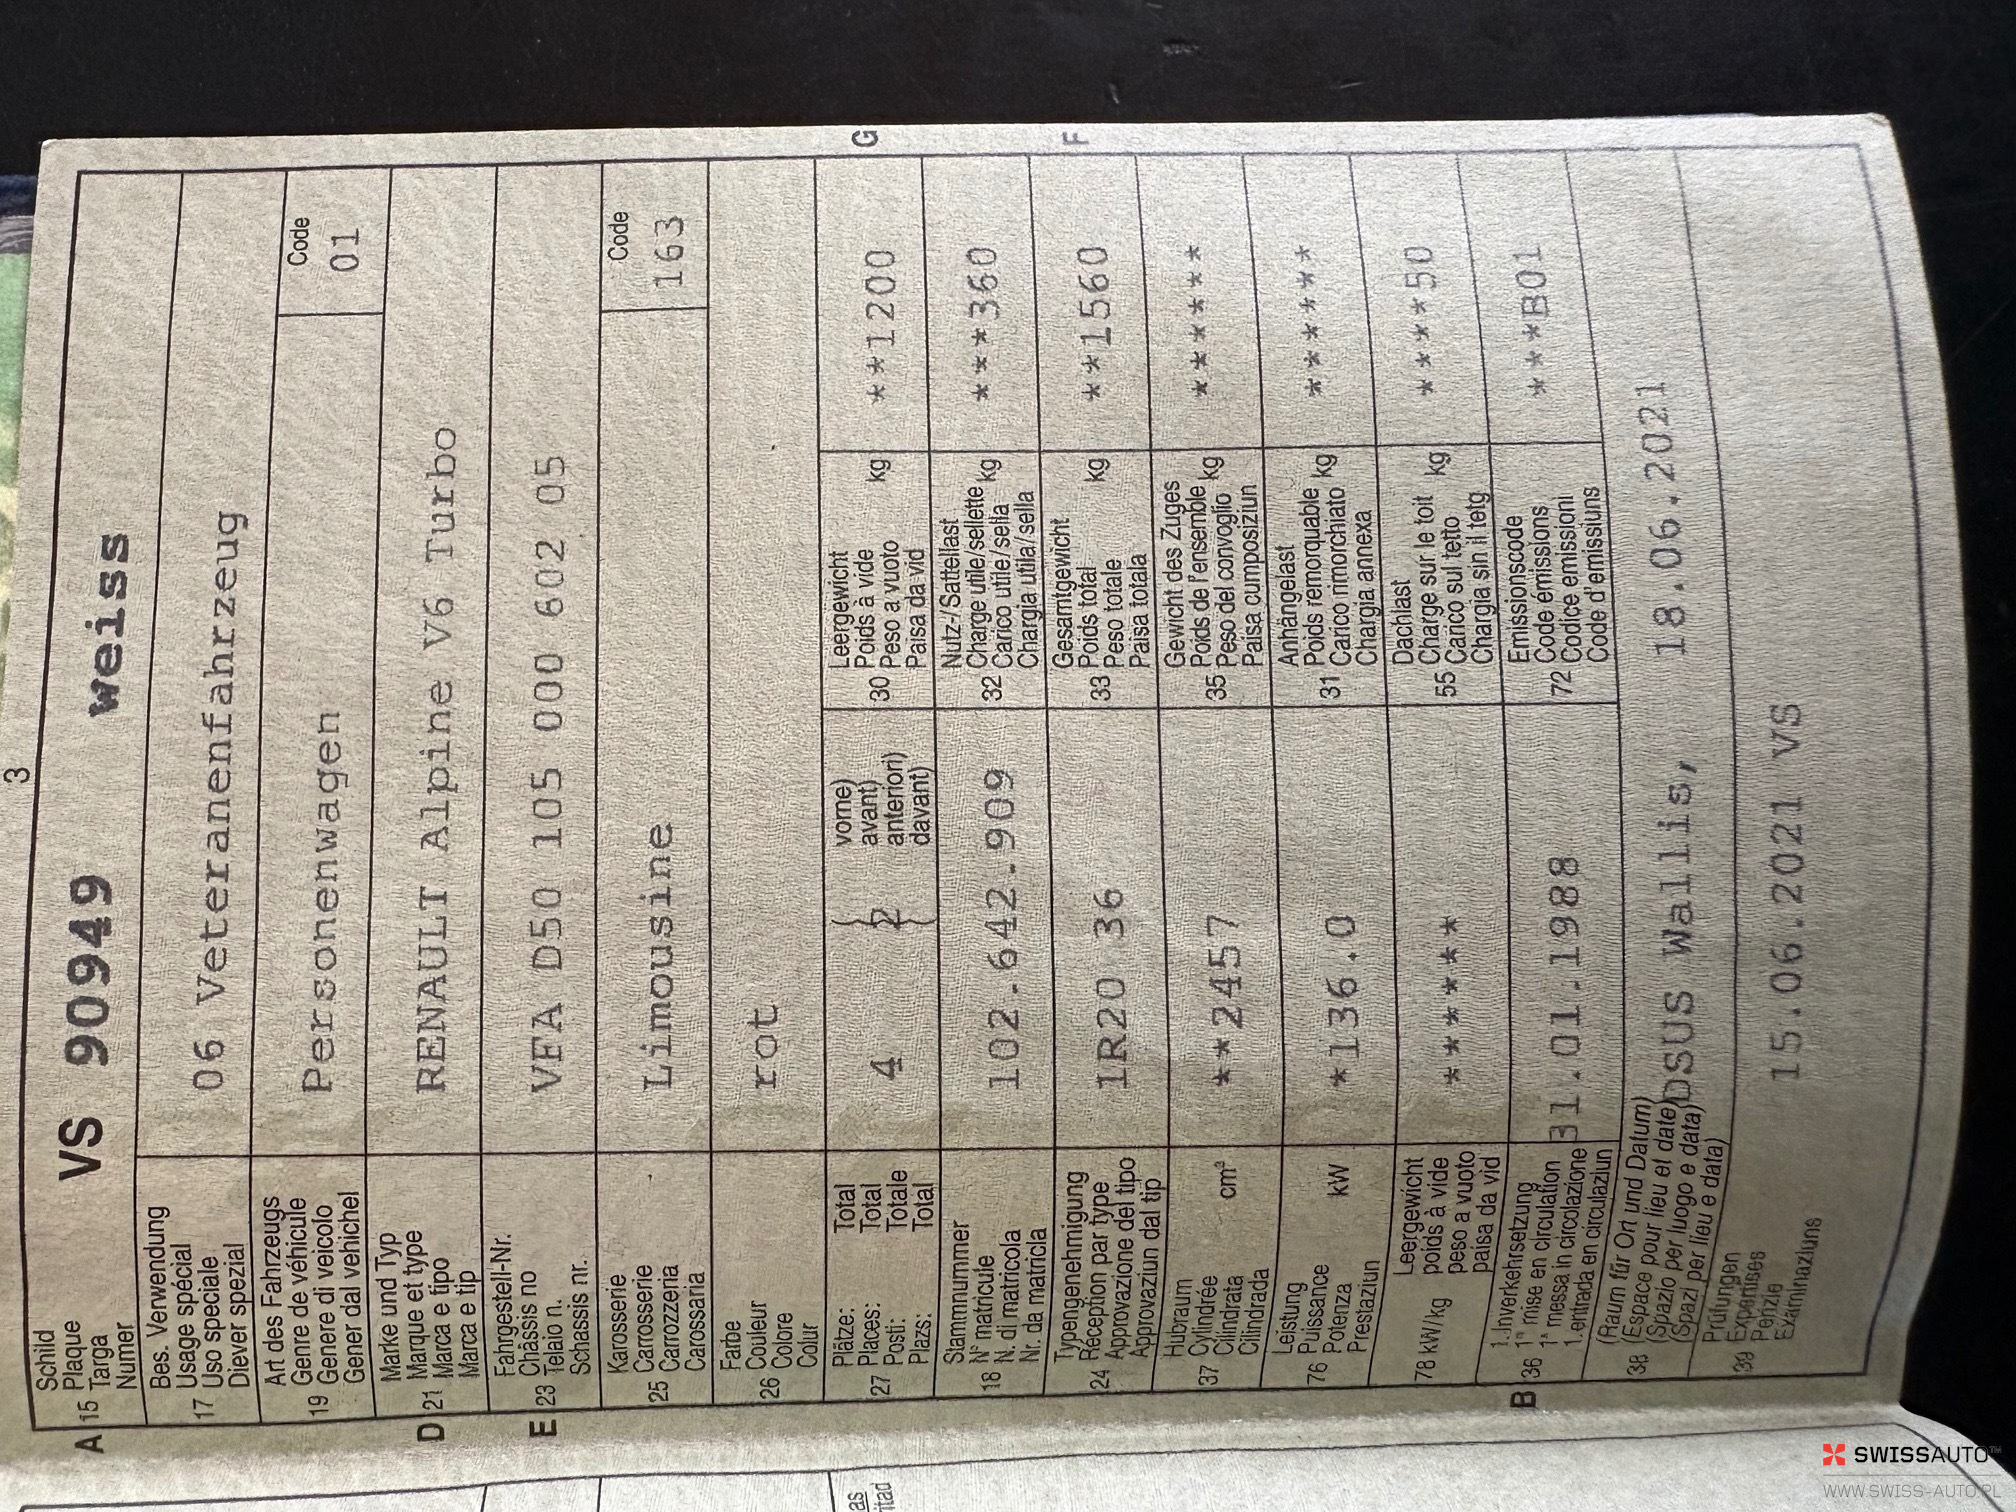 3
A 15 Schild
Plaque
Targa
Numer
VS 90949 weiss
17 Bes. Verwendung
Usage spécial
Uso speciale
Diever spezial
06 Veteranenfahrzeug
19 Art des Fahrzeugs
Genre de véhicule
Genere di veicolo
Gener dal vehichel
Personenwagen
Code
01
D 21 Marke und Typ
Marque et type
Marca e tipo
Marca e tip
RENAULT Alpine V6 Turbo
E 23 Fahrgestell-Nr.
Châssis no
Telaio n.
Schassis nr.
VFA D50 105 000 602 05
25 Karosserie
Carrosserie
Carrozzeria
Carossaria
Limousine
Code
163
26 Farbe
Couleur
Colore
Colur
rot
27 Plätze: Total
Places: Total
Posti: Totale
Plazs: Total
4
2
vorne)
avant)
anteriori)
davant)
30 Leergewicht
Poids à vide
Peso a vuoto kg
Paisa da vid
**1200
G
18 Stammnummer
N° matricule
N. di matricola
Nr. da matricla
102.642.909
32 Nutz-/Sattellast
Charge utile/sellette
Carico utile/sella kg
Chargia utila/sella
***360
24 Typengenehmigung
Réception par type
Approvazione del tipo
Approvaziun dal tip
1R20 36
33 Gesamtgewicht
Poids total
Peso totale kg
Paisa totala
**1560
F
37 Hubraum
Cylindrée
Cilindrata cm³
Cilindrada
**2457
35 Gewicht des Zuges
Poids de l'ensemble
Peso del convoglio kg
Paisa cumposiziun
******
76 Leistung
Puissance
Potenza kW
Prestaziun
*136.0
31 Anhängelast
Poids remorquable
Carico rimorchiato kg
Chargia annexa
******
78 kW/kg Leergewicht
poids à vide
peso a vuoto
paisa da vid
******
55 Dachlast
Charge sur le toit
Carico sul tetto kg
Chargia sin il tetg
****50
B 36 1. Inverkehrsetzung
1re mise en circulation
1a messa in circolazione
1. entrada en circulaziun
31.01.1988
72 Emissionscode
Code émissions
Codice emissioni
Code d'emissiuns
***B01
38 (Raum für Ort und Datum)
(Espace pour lieu et date)
(Spazio per luogo e data)
(Spazi per lieu e data)
DSUS Wallis, 18.06.2021
39 Prüfungen
Expertises
Perizie
Examinaziuns
15.06.2021 VS
SWISSAUTO™
WWW.SWISS-AUTO.PL